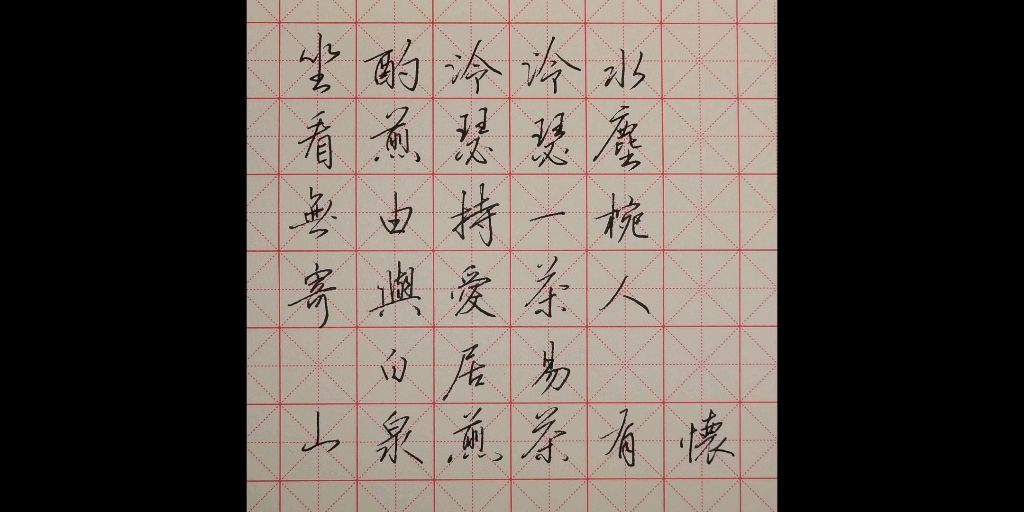 坐酌泠泠水
看煎瑟瑟塵
無由持一椀
寄與愛茶人
白居易
山泉煎茶有懷